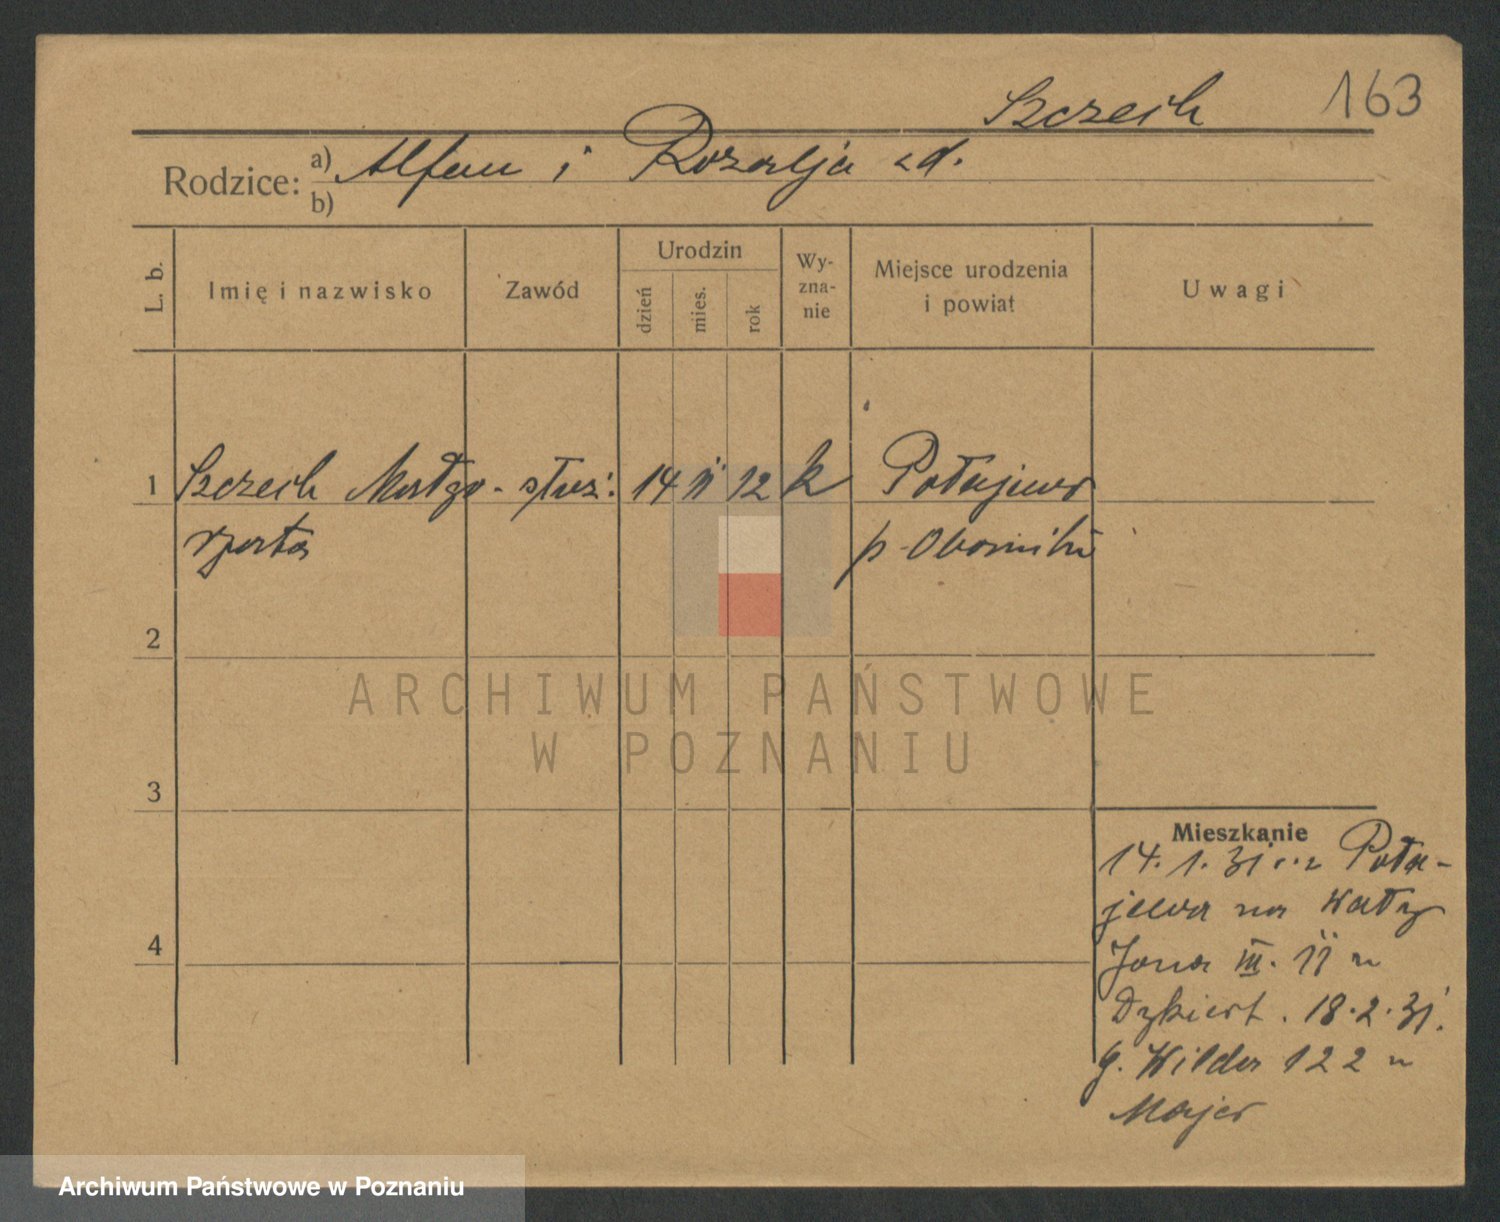 163
Szczech
Rodzice: a) Alfons i Rozalja zd.
b)
L. b.
Imię i nazwisko
Zawód
Urodzin
dzień
mies.
rok
Wy-
zna-
nie
Miejsce urodzenia
i powiat
Uwagi
1 Szczech Małgo- służ. 14 11 12 k Połajewo
rzata p. Oborniki
2
3
4
Mieszkanie
14.1.31 z Poła-
jewa na Wały
Jana III. 11 u
18.2.31.
g. Wilda 122 u
Majer
ARCHIWUM PAŃSTWOWE
W POZNANIU
Archiwum Państwowe w Poznaniu